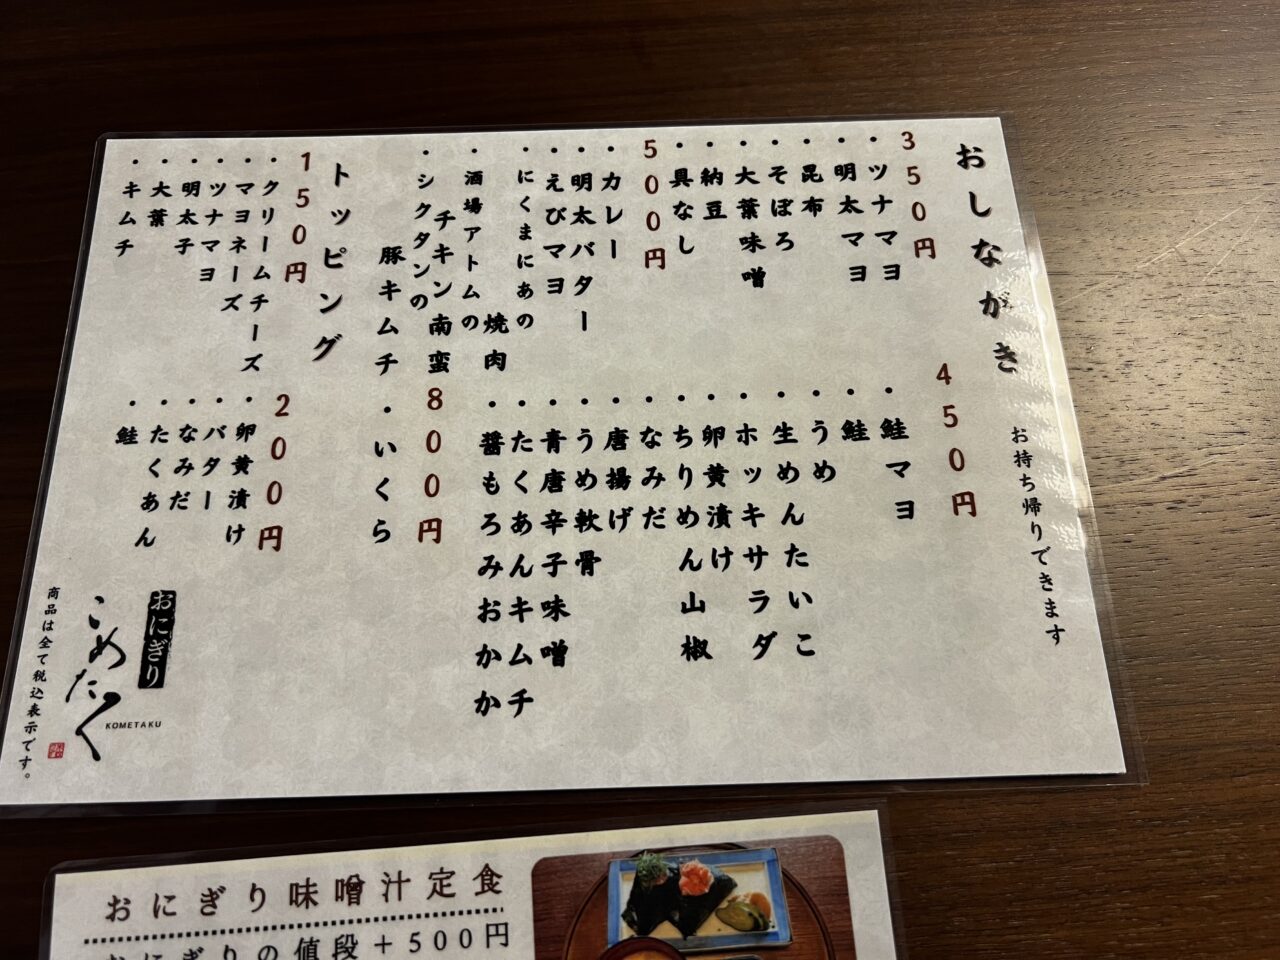 おしながき
お持ち帰りできます
350円
・ツナマヨ
・明太マヨ
・昆布
・そぼろ
・大葉味噌
・納豆
・具なし
450円
・鮭マヨ
・鮭
・うめ
・生めんたいこ
・ホッキサラダ
・卵黄漬け
・ちりめん山椒
・なみだ
・唐揚げ
・うめ軟骨
・青唐辛子味噌
・たくあんキムチ
・醤もろみおかか
500円
・カレー
・明太バター
・えびマヨ
・にくまにあの
焼肉
・酒場アトムの
チキン南蛮
・シクタンの
豚キムチ
800円
・いくら
トッピング
150円
・クリームチーズ
・マヨネーズ
・ツナマヨ
・明太子
・大葉
・キムチ
200円
・卵黄漬け
・バター
・なみだ
・たくあん
・鮭
おにぎり
こめたく
KOMETAKU
商品は全て税込表示です。
おにぎり味噌汁定食
おにぎりの値段＋500円